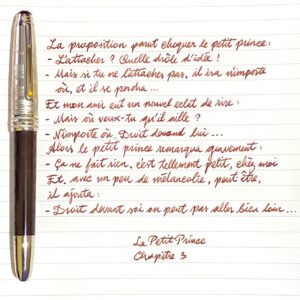 La proposition parut choquer le petit prince:
- L'attacher? Quelle drôle d'idée!
- Mais si tu ne l'attaches pas, il ira n'importe
où, et il se perdra...
Et mon ami eut un nouvel eclat de rire:
- Mais où veux-tu qu'il aille?
- N'importe où. Droit devant lui...
Alors le petit prince remarqua gravement:
- Ça ne fait rien, c'est tellement petit, chez moi
Et, avec un peu de mélancolie, peut être,
il ajouta:
- Droit devant soi on peut pas aller bien loin...
Le Petit Prince
Chapitre 3